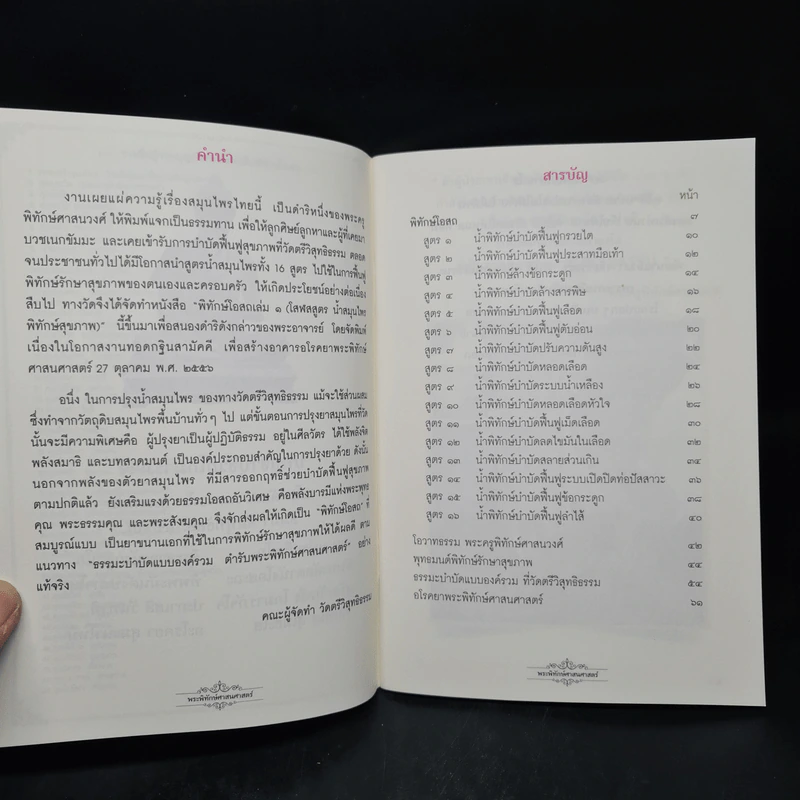 คำนำ
งานเผยแผ่ความรู้เรื่องสมุนไพรไทยนี้ เป็นดำริหนึ่งของพระครู
พิทักษ์ศาสนวงศ์ ให้พิมพ์แจกเป็นธรรมทาน เพื่อให้ลูกศิษย์ลูกหาและผู้ที่เคยมา
บวชเนกขัมมะ และเคยเข้ารับการบำบัดฟื้นฟูสุขภาพที่วัดตรีวิสุทธิธรรม ตลอด
จนประชาชนทั่วไปได้มีโอกาสนำสูตรน้ำสมุนไพรทั้ง 16 สูตร ไปใช้ในการฟื้นฟู
พิทักษ์รักษาสุขภาพของตนเองและครอบครัว ให้เกิดประโยชน์อย่างต่อเนื่อง
สืบไป ทางวัดจึงได้จัดทำหนังสือ "พิทักษ์โอสถเล่ม ๑ (โสฬสสูตร น้ำสมุนไพร
พิทักษ์สุขภาพ)" นี้ขึ้นมาเพื่อสนองดำริดังกล่าวของพระอาจารย์ โดยจัดพิมพ์
เนื่องในโอกาสงานทอดกฐินสามัคคี เพื่อสร้างอาคารอโรคยาพระพิทักษ์
ศาสนศาสตร์ 27 ตุลาคม พ.ศ. ๒๕๕๖
อนึ่ง ในการปรุงน้ำสมุนไพร ของทางวัดตรีวิสุทธิธรรม แม้จะใช้ส่วนผสม
ซึ่งทำจากวัตถุดิบสมุนไพรพื้นบ้านทั่วๆ ไป แต่ขั้นตอนการปรุงยาสมุนไพรที่วัด
นั้นจะมีความพิเศษคือ ผู้ปรุงยาเป็นผู้ปฏิบัติธรรม อยู่ในศีลวัตร ได้ใช้พลังจิต
พลังสมาธิ และบทสวดมนต์ เป็นองค์ประกอบสำคัญในการปรุงยาด้วย ดังนั้น
นอกจากพลังของตัวยาสมุนไพร ที่มีสารออกฤทธิ์ช่วยบำบัดฟื้นฟูสุขภาพ
ตามปกติแล้ว ยังเสริมแรงด้วยธรรมโอสถอันวิเศษ คือพลังบารมีแห่งพระพุทธ
คุณ พระธรรมคุณ และพระสังฆคุณ จึงจักส่งผลให้เกิดเป็น "พิทักษ์โอสถ" ที่
สมบูรณ์แบบ เป็นยาขนานเอกที่ใช้ในการพิทักษ์รักษาสุขภาพให้ได้ผลดี ตาม
แนวทาง "ธรรมะบำบัดแบบองค์รวม ตำรับพระพิทักษ์ศาสนศาสตร์" อย่าง
แท้จริง
คณะผู้จัดทำ วัดตรีวิสุทธิธรรม
พระพิทักษ์ศาสนศาสตร์
สารบัญ
หน้า
พิทักษ์โอสถ ๗
สูตร ๑ น้ำพิทักษ์บำบัดฟื้นฟูกรวยไต ๑๐
สูตร ๒ น้ำพิทักษ์บำบัดฟื้นฟูประสาทมือเท้า ๑๒
สูตร ๓ น้ำพิทักษ์ล้างข้อกระดูก ๑๔
สูตร ๔ น้ำพิทักษ์บำบัดล้างสารพิษ ๑๖
สูตร ๕ น้ำพิทักษ์บำบัดฟื้นฟูเลือด ๑๘
สูตร ๖ น้ำพิทักษ์บำบัดฟื้นฟูตับอ่อน ๒๐
สูตร ๗ น้ำพิทักษ์บำบัดปรับความดันสูง ๒๒
สูตร ๘ น้ำพิทักษ์บำบัดหลอดเลือด ๒๔
สูตร ๙ น้ำพิทักษ์บำบัดระบบน้ำเหลือง ๒๖
สูตร ๑๐ น้ำพิทักษ์บำบัดหลอดเลือดหัวใจ ๒๘
สูตร ๑๑ น้ำพิทักษ์บำบัดฟื้นฟูเม็ดเลือด ๓๐
สูตร ๑๒ น้ำพิทักษ์บำบัดลดไขมันในเลือด ๓๒
สูตร ๑๓ น้ำพิทักษ์บำบัดสลายส่วนเกิน ๓๔
สูตร ๑๔ น้ำพิทักษ์บำบัดฟื้นฟูระบบเปิดปิดท่อปัสสาวะ ๓๖
สูตร ๑๕ น้ำพิทักษ์บำบัดฟื้นฟูข้อกระดูก ๓๘
สูตร ๑๖ น้ำพิทักษ์บำบัดฟื้นฟูลำไส้ ๔๐
โอวาทธรรม พระครูพิทักษ์ศาสนวงศ์ ๔๒
พุทธมนต์พิทักษ์รักษาสุขภาพ ๔๔
ธรรมะบำบัดแบบองค์รวม ที่วัดตรีวิสุทธิธรรม ๕๔
อโรคยาพระพิทักษ์ศาสนศาสตร์ ๖๑
พระพิทักษ์ศาสนศาสตร์